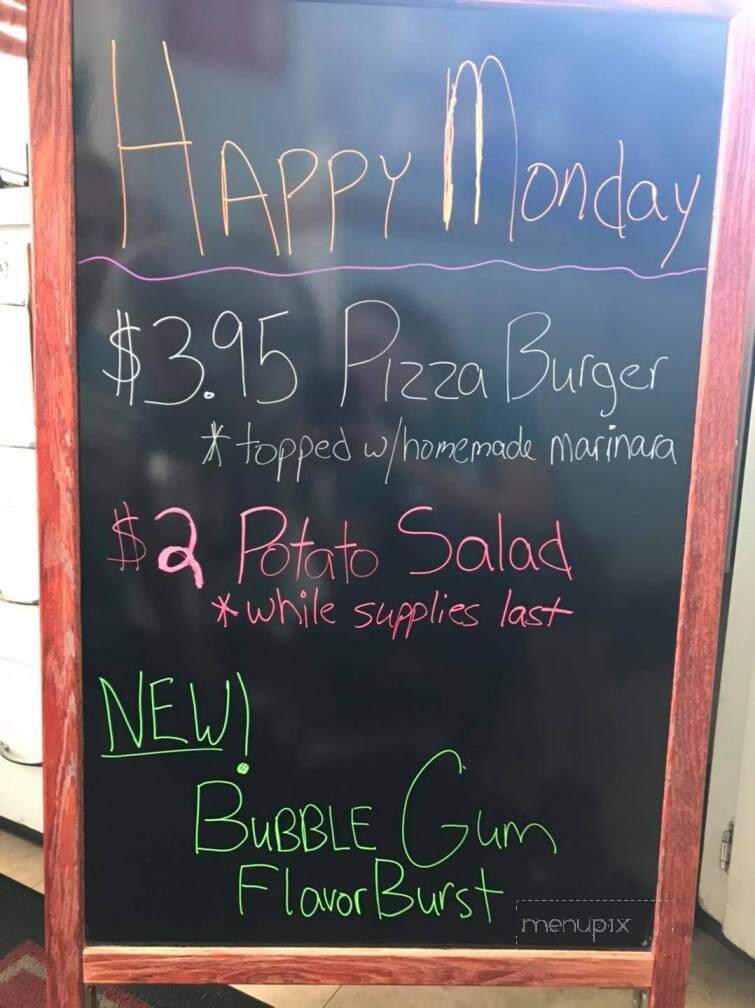 HAPPY Monday
$3.95 Pizza Burger
* topped w/homemade marinara
$2 Potato Salad
* while supplies last
NEW!
BUBBLE Gum
FlavorBurst
menupix